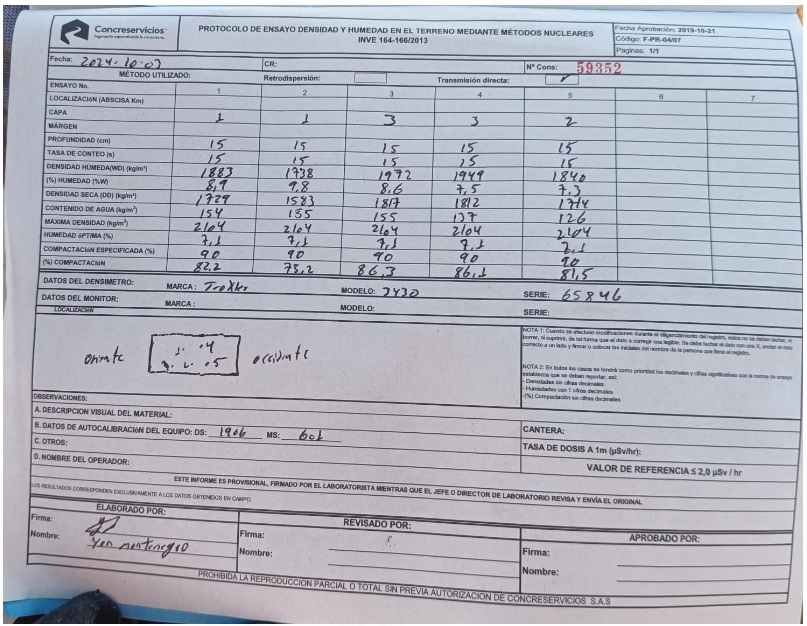 Concreservicios
PROTOCOLO DE ENSAYO DENSIDAD Y HUMEDAD EN EL TERRENO MEDIANTE MÉTODOS NUCLEARES
INVE 164-166/2013
Fecha Aprobación: 2019-10-21
Código: F-PR-04/07
Paginas: 1/1
Fecha: 2024-10-07 CR: Nº Cons: 59352
MÉTODO UTILIZADO: Retrodispersión: Transmisión directa: ✓
ENSAYO No. 1 2 3 4 5 6 7
LOCALIZACIÓN (ABSCISA Km)
CAPA 1 1 3 3 2
MÁRGEN
PROFUNDIDAD (cm) 15 15 15 15 15
TASA DE CONTEO (s) 15 15 15 15 15
DENSIDAD HÚMEDA(WD) (kg/m³) 1883 1738 1972 1949 1840
(%) HUMEDAD (%W) 8,9 9,8 8,6 7,5 7,3
DENSIDAD SECA (DD) (kg/m³) 1729 1583 1817 1812 1714
CONTENIDO DE AGUA (kg/m³) 154 155 155 137 126
MÁXIMA DENSIDAD (kg/m³) 2104 2104 2104 2104 2104
HUMEDAD óPTIMA (%) 7,1 7,1 7,1 7,1 7,1
COMPACTACIÓN ESPECIFICADA (%) 90 90 90 90 90
(%) COMPACTACIÓN 82,2 75,2 86,3 86,1 81,5
DATOS DEL DENSIMETRO: MARCA: Troxler MODELO: 3430 SERIE: 65846
DATOS DEL MONITOR: MARCA: MODELO: SERIE:
LOCALIZACIÓN
NOTA 1: Cuando se efectuen modificaciones durante el diligenciamiento del registro, estos no se deben tachar, ni
borrar, ni suprimir, de tal forma que el dato a corregir sea legible. Se debe tachar el dato con una X, anotar el dato
correcto a un lado y firmar o colocar las iniciales del nombre de la persona que lleva el registro.
NOTA 2: En todos los casos se tendrá como prioridad los decimales y cifras significativas que la norma de ensayo
establezca que se deben reportar, así:
- Densidades sin cifras decimales
- Humedades con 1 cifras decimales
-(%) Compactación sin cifras decimales
oriente 1. .4 occidente
3. 2. .5
OBSERVACIONES:
A. DESCRIPCION VISUAL DEL MATERIAL: CANTERA:
B. DATOS DE AUTOCALIBRACIÓN DEL EQUIPO: DS: 1906 MS: 601
C. OTROS: TASA DE DOSIS A 1m (µSv/hr):
D. NOMBRE DEL OPERADOR: VALOR DE REFERENCIA ≤ 2,0 µSv / hr
ESTE INFORME ES PROVISIONAL, FIRMADO POR EL LABORATORISTA MIENTRAS QUE EL JEFE O DIRECTOR DE LABORATORIO REVISA Y ENVÍA EL ORIGINAL
LOS RESULTADOS CORRESPONDEN EXCLUSIVAMENTE A LOS DATOS OBTENIDOS EN CAMPO.
ELABORADO POR: REVISADO POR: APROBADO POR:
Firma: Firma: Firma:
Nombre: Yen montenegro Nombre: Nombre:
PROHIBIDA LA REPRODUCCION PARCIAL O TOTAL SIN PREVIA AUTORIZACION DE CONCRESERVICIOS S.A.S